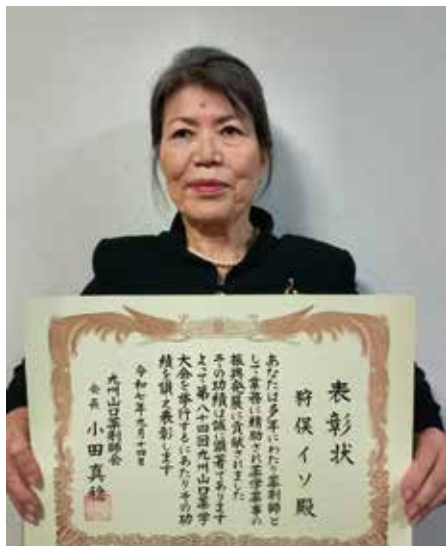 表彰状
狩俣イソ殿
あなたは多年にわたり薬剤師と
して業務に精励され薬学薬事の
振興発展に貢献されました
その功績は誠に顕著であります
よって第八十四回九州山口薬学
大会を挙行するにあたりその功
績を讃え表彰します
令和七年九月十四日
九州山口薬剤師会
会長 小田真稔